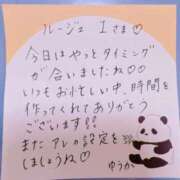 ルージュ Iさま♡
今日はやっとタイミング
が合いましたね♡♡
いつもお忙しい中、時間を
作ってくれてありがとう
ございます!!
また アレの設定を
しましょうね♡
ゆうか